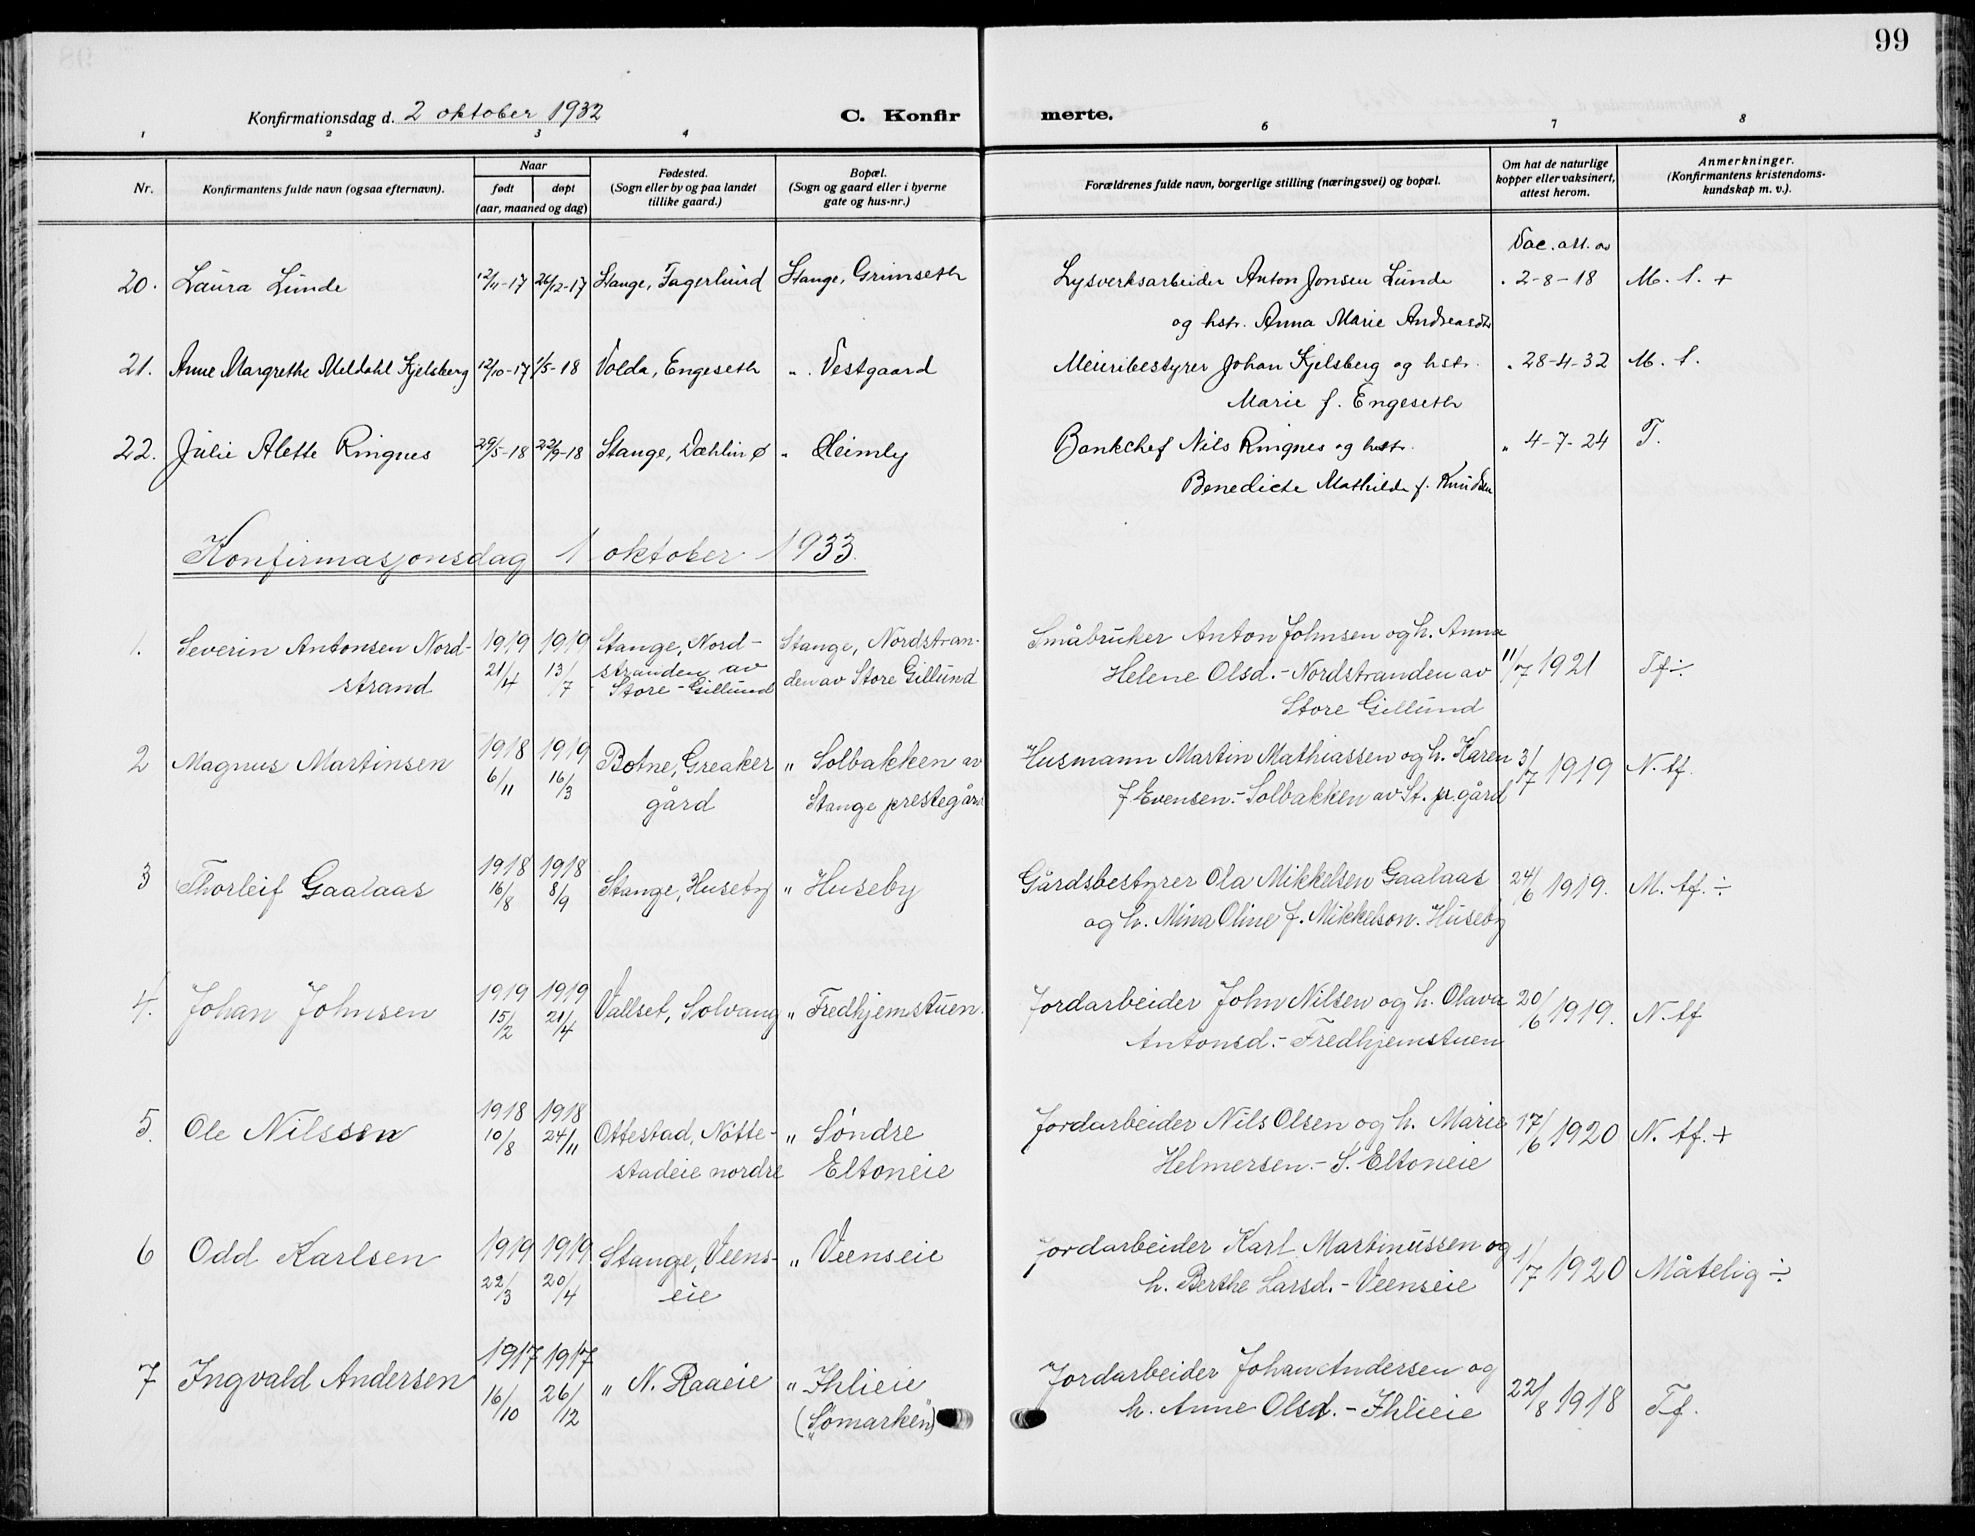 99
Konfirmationsdag d. 2 oktober 1932 C. Konfirmerte.
1 2 3 4 6 7 8
Nr. Konfirmantens fulde navn (ogsaa efternavn). Naar født døpt (aar, maaned og dag) Fødested. (Sogn eller by og paa landet tillike gaard.) Bopæl. (Sogn og gaard eller i byerne gate og hus-nr.) Forældrenes fulde navn, borgerlige stilling (næringsvei) og bopæl. Om hat de naturlige kopper eller vaksinert, attest herom. Anmerkninger. (Konfirmantens kristendomskundskap m. v.).
Vac. att. av
20. Laura Lunde 12/11-17 26/12-17 Stange, Fagerlund Stange, Grimseth Lysverksarbeider Anton Jonsen Lunde " 2-8-18 M. t. +
og hstr. Anna Marie Andreasdtr
21. Anne Margrethe Meldahl Kjelsberg 12/10-17 1/5-18 Volda, Engeseth " Vestgaard Meieribestyrer Johan Kjelsberg og hstr. " 28-4-32 M. t.
Marie f. Engeseth
22. Julie Alette Ringnes 29/5-18 22/9-18 Stange, Dæhlin ø " Heimly Bankchef Nils Ringnes og hstr. " 4-7-24 T.
Benedicte Mathilde f. Knudsen
Konfirmasjonsdag 1 oktober 1933.
1. Severin Antonsen Nord- 1919 1919 Stange, Nord- Stange, Nordstran- Småbruker Anton Johnsen og h. Anna
strand 21/4 13/7 stranden av Store-Gillund den av Store Gillund Helene Olsd. - Nordstranden av 11/7 1921 Tf ÷
Store Gillund
2 Magnus Martinsen 1918 1919 Botne, Greaker " Solbakken av Husmann Martin Mathiassen og h. Karen 3/7 1919 N. tf.
6/11 16/3 gård Stange prestegård f Evensen. - Solbakken av St. pr. gård
3 Thorleif Gaalaas 1918 1918 Stange, Huseby " Huseby Gårdsbestyrer Ola Mikkelsen Gaalaas 24/6 1919. M. tf. ÷
16/8 8/9 og h. Mina Oline f. Mikkelson. Huseby
4. Johan Johnsen 1919 1919 Vallset, Solvang " Fredhjemstuen. Jordarbeider John Nilsen og h. Olava 20/6 1919. N. tf
15/2 21/4 Antonsd. - Fredhjemstuen
5. Ole Nilssen 1918 1918 Ottestad, Nøtte- " Søndre Jordarbeider Nils Olsen og h. Marie 17/6 1920 N. tf. +
10/8 24/11 stadeie nordre Eltoneie Helmersen. - S. Eltoneie
6 Odd Karlsen 1919 1919 Stange, Veens- " Veenseie Jordarbeider Karl Martinussen og 1/7 1920 Måtelig ÷
22/3 20/4 eie h. Berthe Larsd. - Veenseie
7 Ingvald Andersen 1917 1917 " N. Raaeie " Ihlieie Jordarbeider Johan Andersen og
16/10 26/12 ("Sømarken") h. Anne Olsd. - Ihlieie 22/8 1918 Tf.